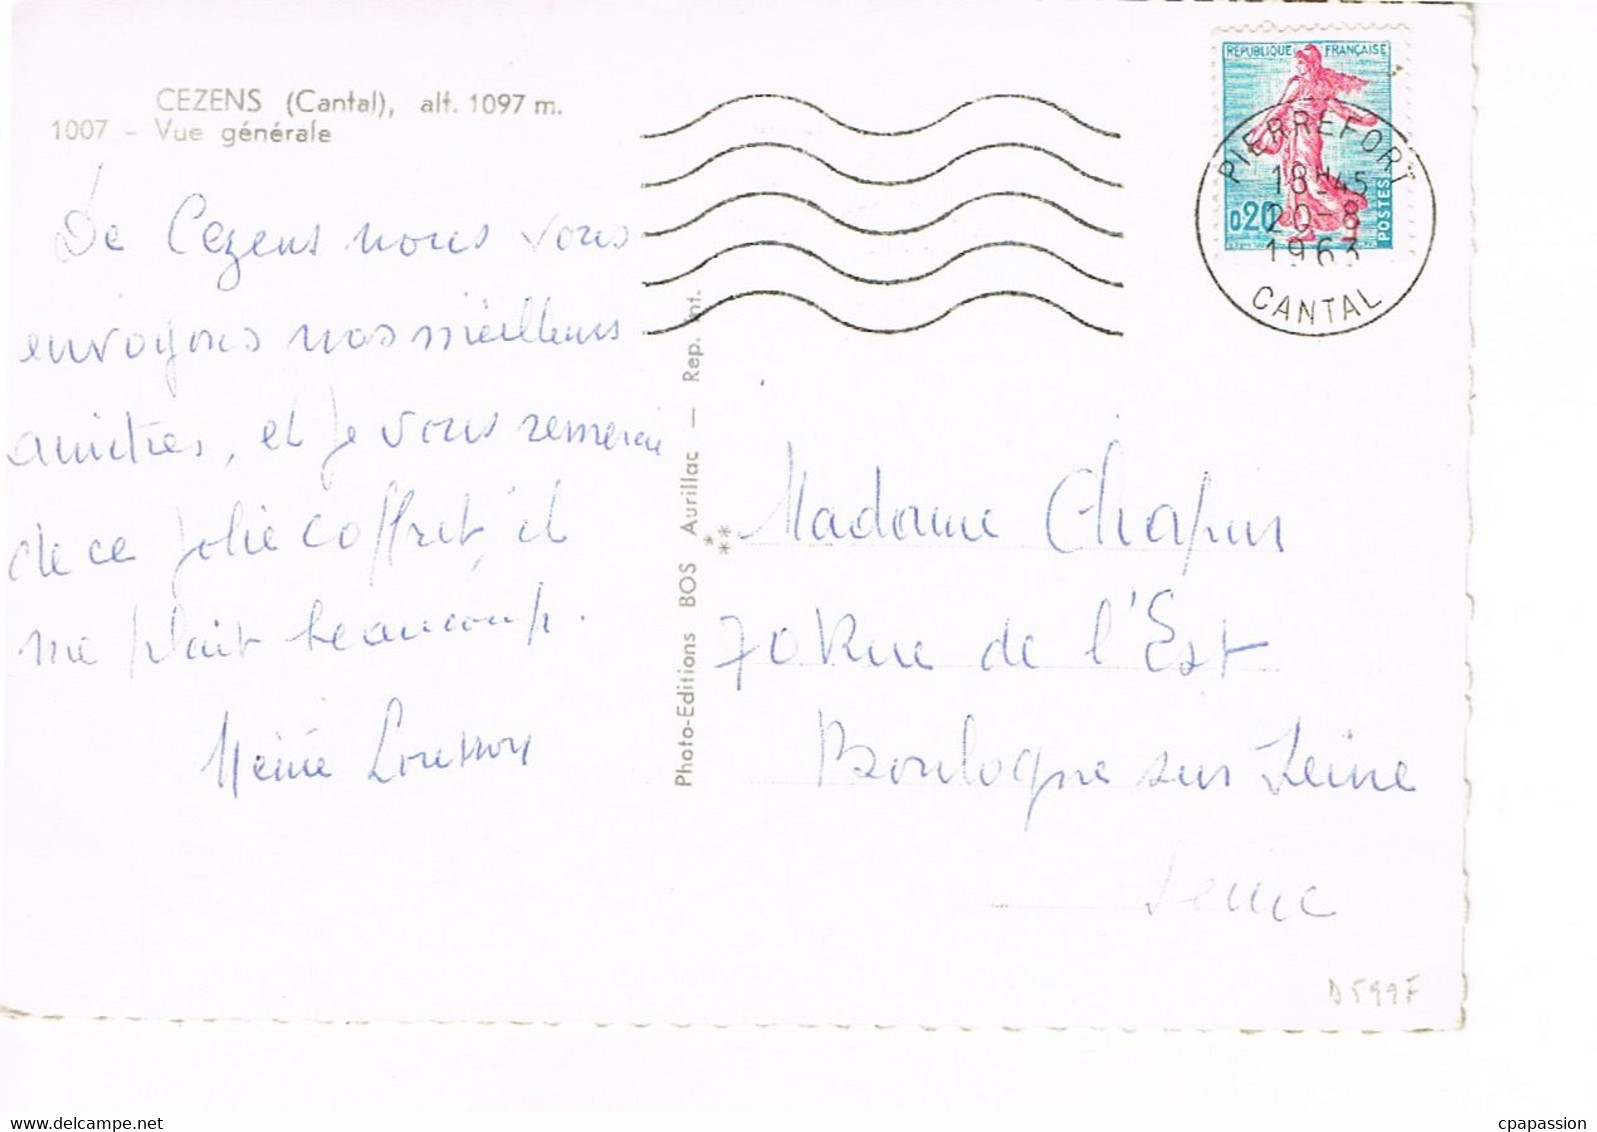 CEZENS (Cantal), alt. 1097 m.
1007 - Vue générale
De Cezens nous vous
envoyons nos meilleurs
amitiés, et je vous remercie
de ce jolie coffret, il
me plait beaucoup.
Photo-Editions BOS Aurillac — Rep. Int.
REPUBLIQUE FRANÇAISE
0,20
POSTES
PIERREFORT
18H45
20-8
1963
CANTAL
Madame Chapus
70 Rue de l'Est
Boulogne sur Seine
Seine
D599F
cpapassion